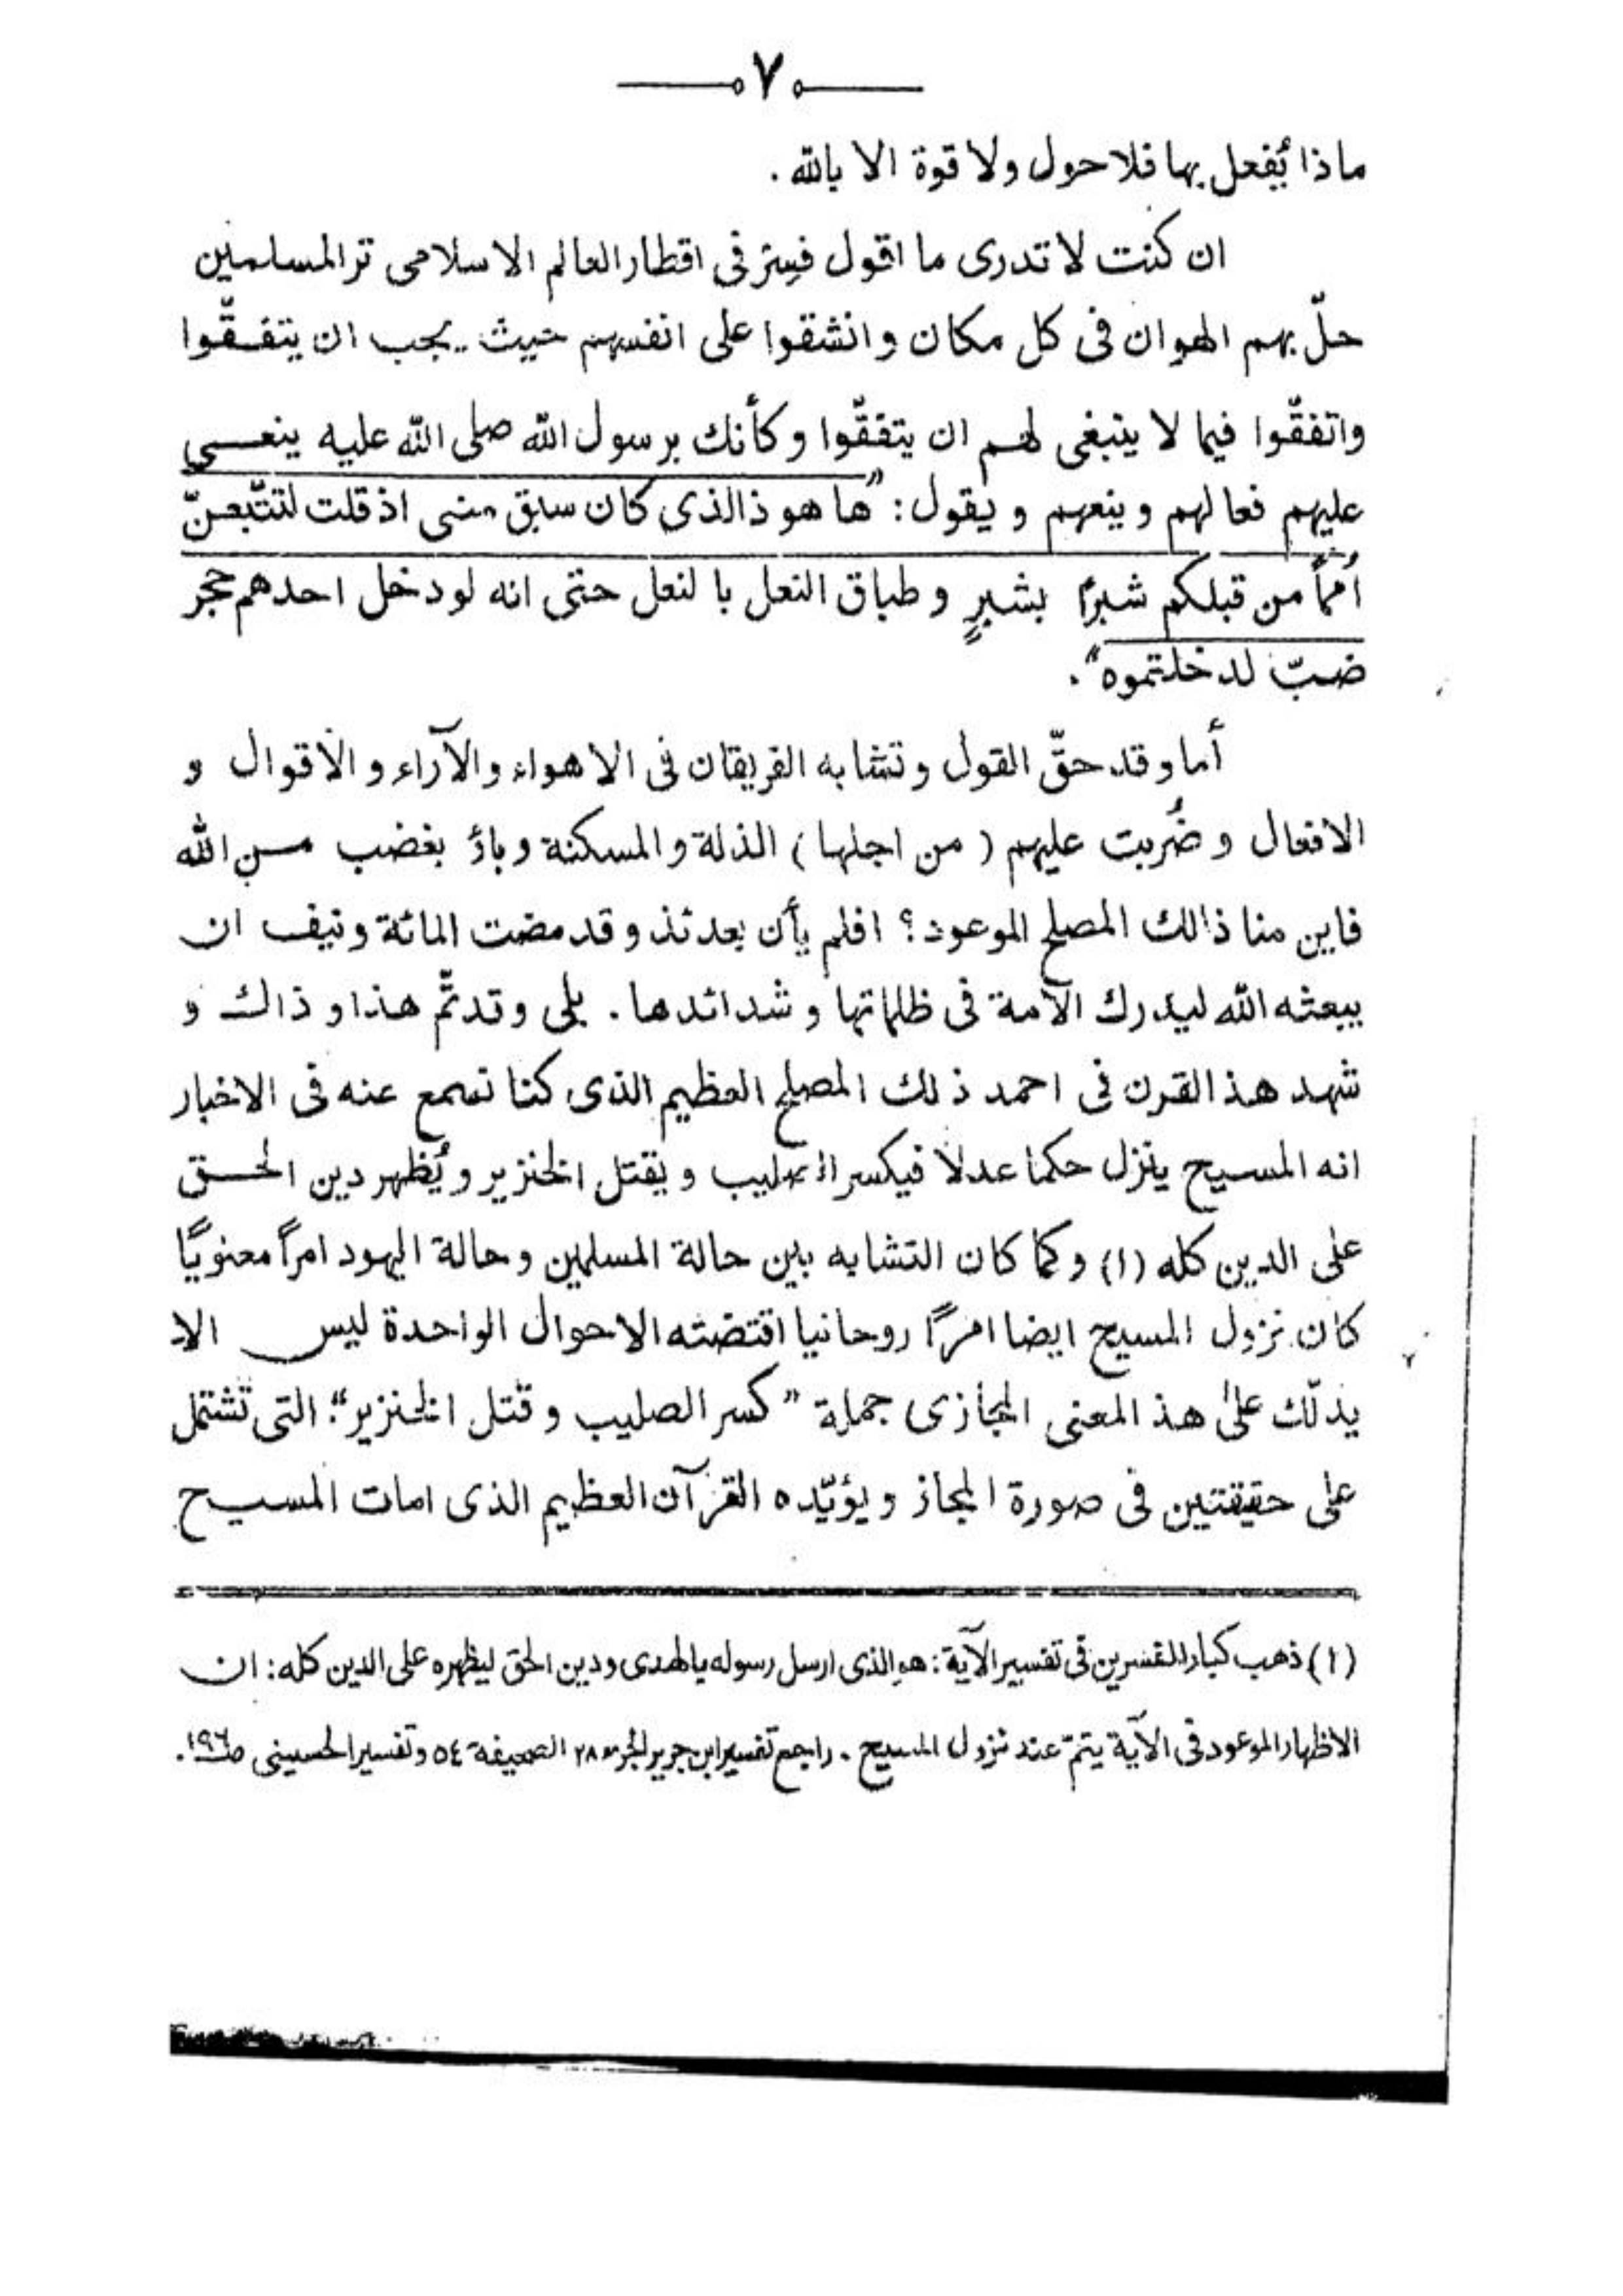 ٧
ماذا يُفعل بها فلا حول ولا قوة الا بالله .
ان كنت لا تدرى ما اقول فسِر فى اقطار العالم الاسلامى تر المسلمين
حلّ بهم الهوان فى كل مكان وانشقوا على انفسهم حيث يجب ان يتفقّوا
واتفقّوا فيما لا ينبغى لهم ان يتفقّوا وكأنك برسول الله صلى الله عليه ينعـى
عليهم فعالهم وينعهم ويقول: "ها هو ذالذى كان سبق منى اذ قلت لتتّبعنّ
أمماً من قبلكم شبرًا بشبرٍ وطباق النعل بالنعل حتى انه لو دخل احدهم حجر
ضبّ لدخلتموه".
أما وقد حقّ القول وتشابه الفريقان فى الاهواء والآراء والاقوال و
الافعال وضُربت عليهم ( من اجلها ) الذلة والمسكنة وباؤ بغضب مـن الله
فاين منا ذالك المصلح الموعود؟ افلم يأن بعدئذ وقد مضت المائة ونيف ان
يبعثه الله ليدرك الأمة فى ظلماتها وشدائدها . بلى وقد تمّ هذا وذاك و
شهد هذ القرن فى احمد ذلك المصلح العظيم الذى كنا نسمع عنه فى الاخبار
انه المسيح ينزل حكما عدلا فيكسر الصليب ويقتل الخنزير ويُظهر دين الحـق
على الدين كله (١) وكما كان التشابه بين حالة المسلمين وحالة اليهود امراً معنويًا
كان نزول المسيح ايضا امرًا روحانيا اقتضته الاحوال الواحدة ليس الا
يدلّك علىٰ هذ المعنى المجازى جملة "كسر الصليب وقتل الخنزير" التى تشتمل
على حقيقتين فى صورة المجاز ويؤيّده القرآن العظيم الذى امات المسيح
(١) ذهب كبار المفسرين فى تفسير الآية: هو الذى ارسل رسوله بالهدى ودين الحق ليظهره على الدين كله: ان
الاظهار الموعود فى الآية يتمّ عند نزول المسيح . راجع تفسير ابن جرير الجزء ٢٨ الصحيفة ٥٤ وتفسير الحسينى صـ١٩٦.